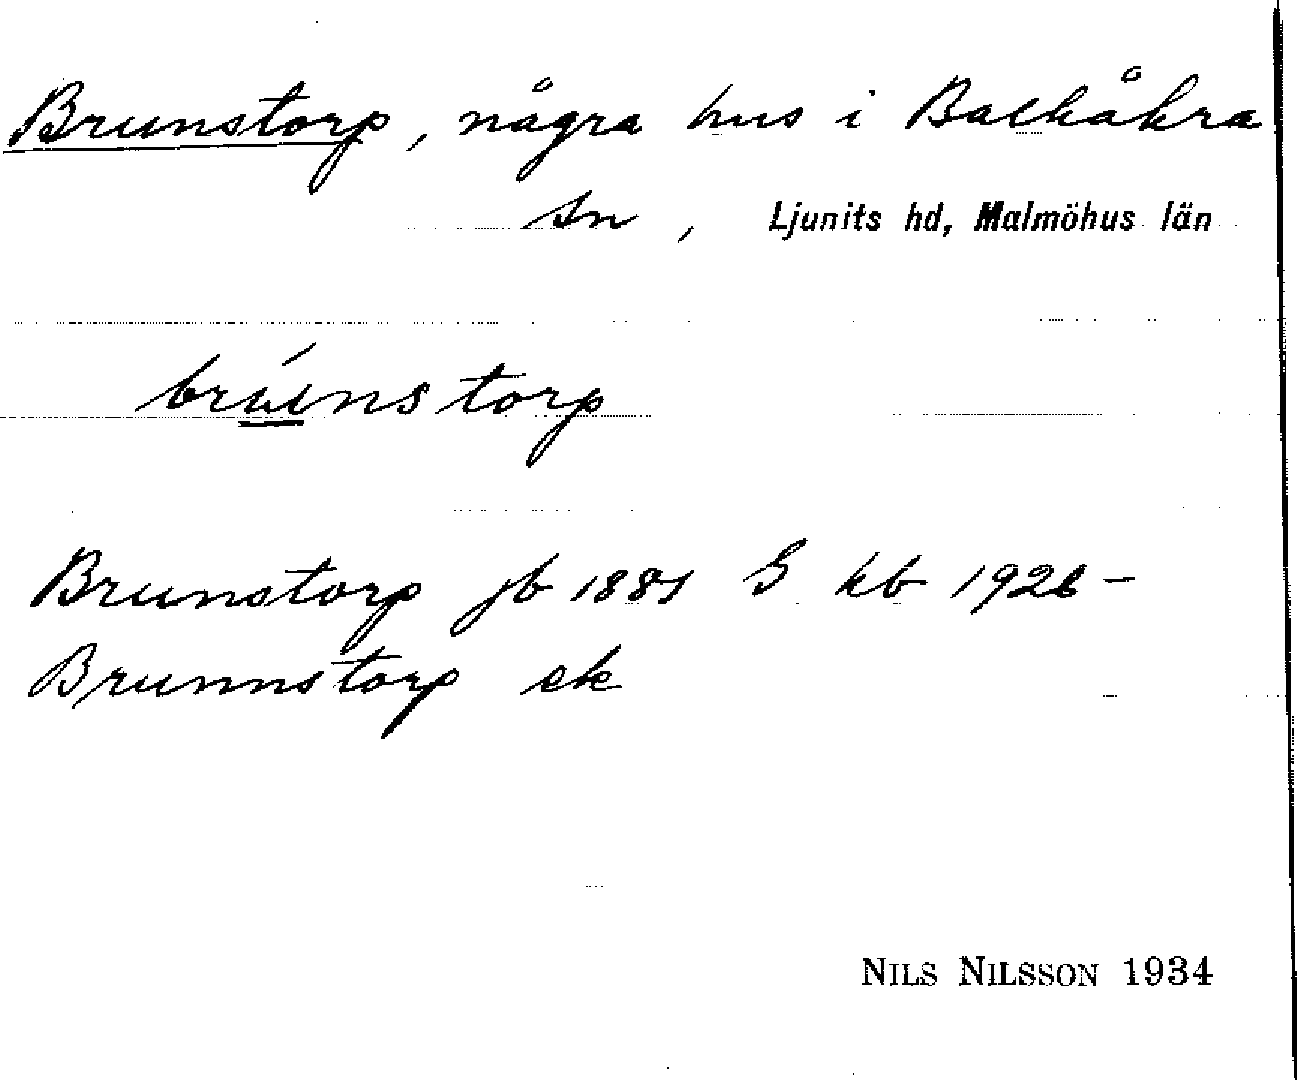 Brunstorp, några hus i Balkåkra
sn, Ljunits hd, Malmöhus län
brúnstorp
Brunstorp jb 1881 S kb 1926–
Brunnstorp ek
NILS NILSSON 1934